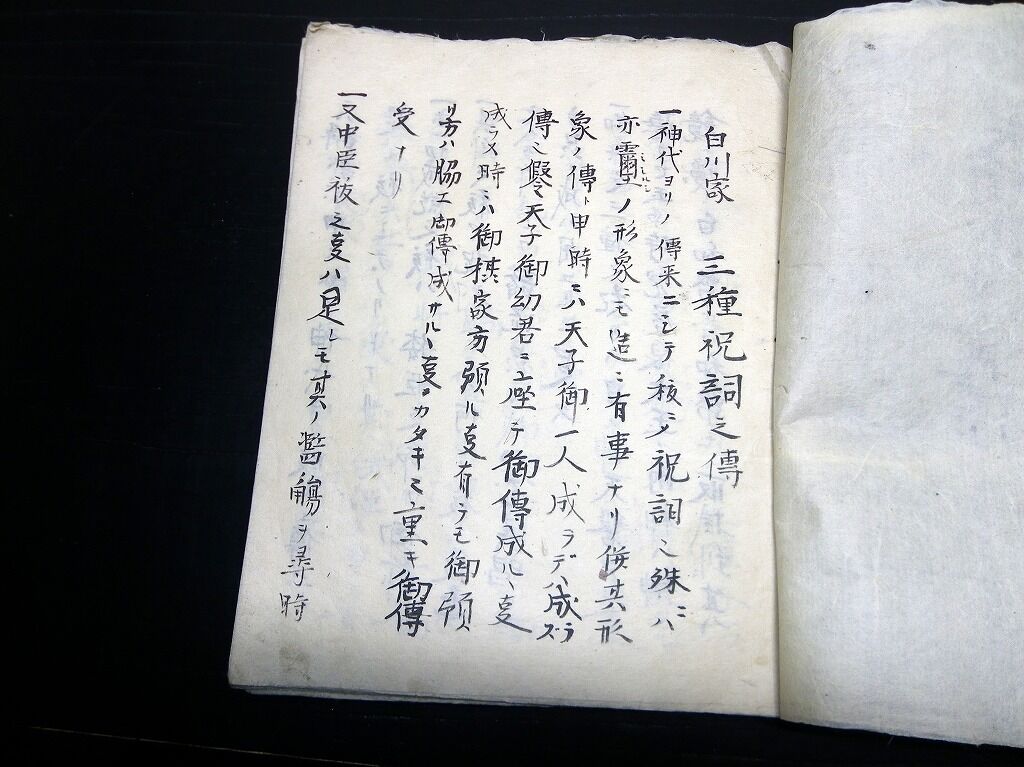 白川家 三種祝詞之傳
一神代ヨリノ傳来ニシテ祓ニノ祝詞之殊ニハ
亦霊ノ形象ニモ造ニ有事ナリ併其形
象ノ傳ト申時ニハ天子御一人成ラデハ成ラズ
傳ミ天子御幼君ニ座テ御傳成ル、叓
成ラメ時ニハ御摂家方預ル叓有ラモ御預
リ方ハ脇エ御傳成サル、叓カタキミ重キ御傳
受ナリ
一又中臣祓之叓ハ是レモ其ノ濫觴ヲ尋時